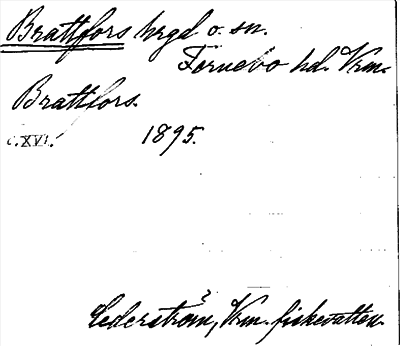 Brattfors hrgd o. sn.
Fernebo hd. Vrm.
Brattfors.
c.XVI. 1895.
Cederström, Vrm. fiskevatten.